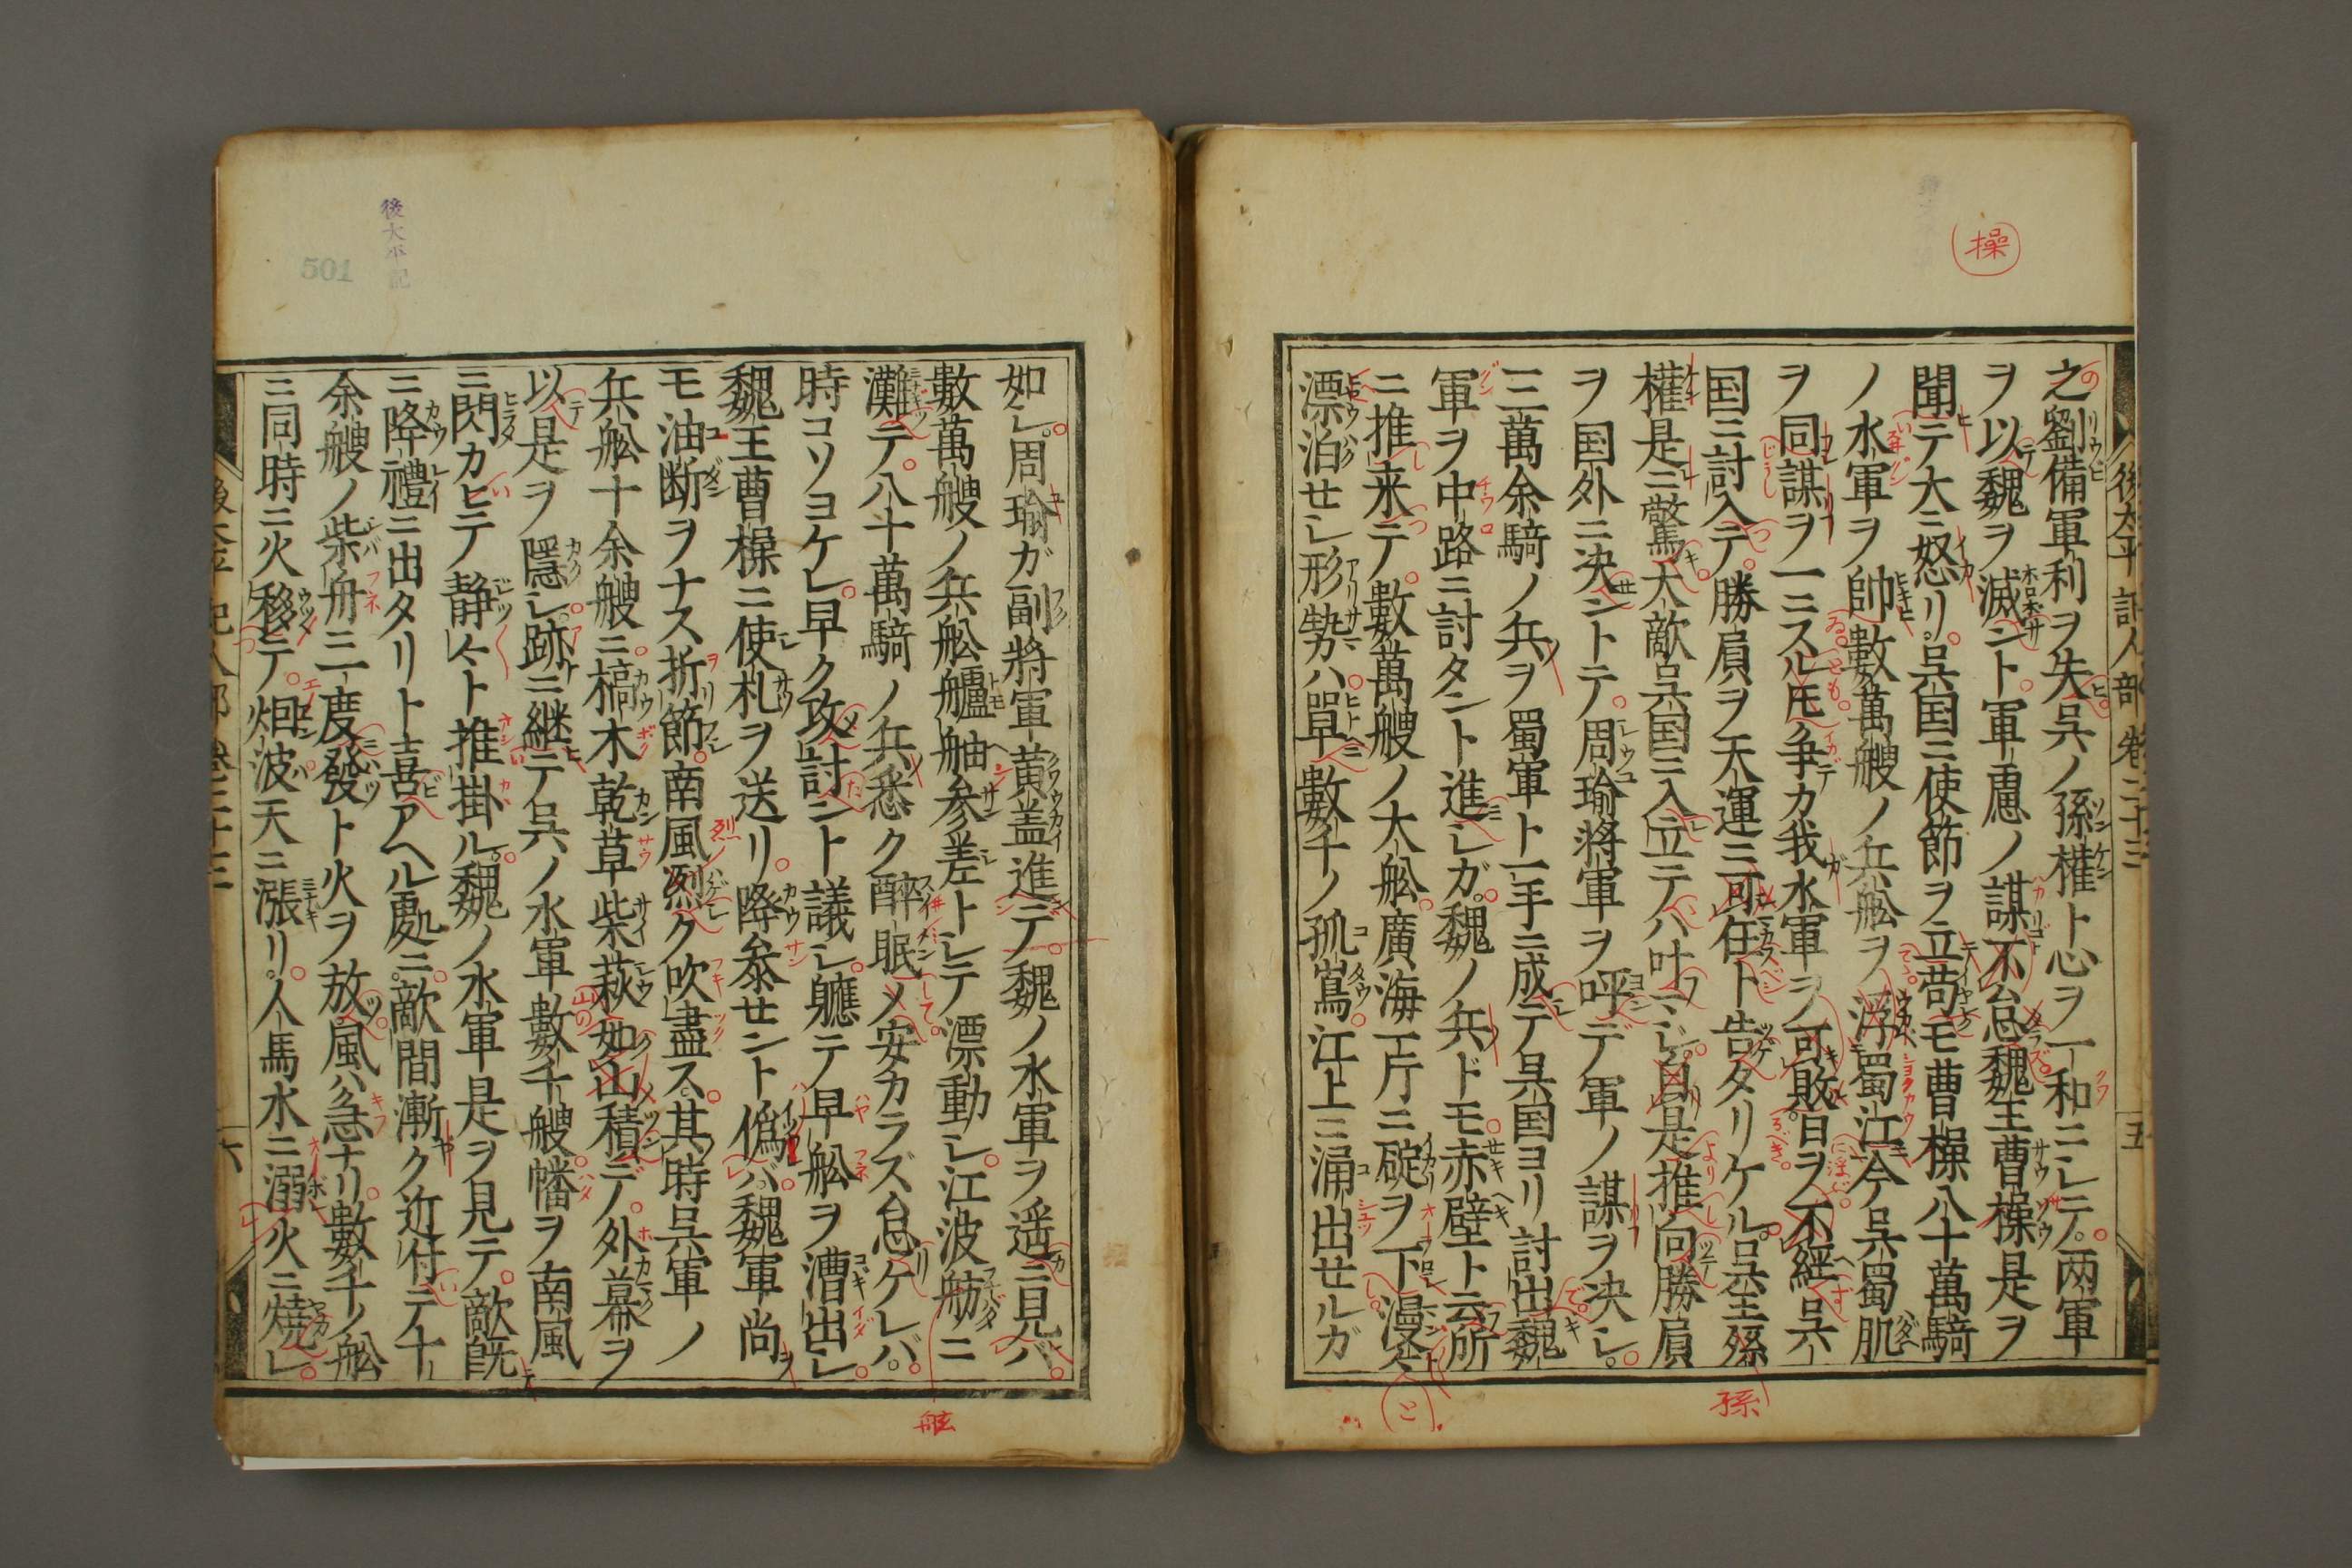 操
後太平記人部 巻二十三
五
之劉備軍利ヲ失呉ノ孫權ト心ヲ一和ニシテ両軍
ヲ以魏ヲ滅ント軍慮ノ謀不怠魏王曹操是ヲ
聞テ大ニ怒リ呉国ニ使節ヲ立苟モ曹操八十萬騎
ノ水軍ヲ帥數萬艘ノ兵舩ヲ浮蜀江今呉蜀肌
ヲ同謀ヲ一ニスル𪜈争カ我水軍ヲ可敗日ヲ不經呉
国ニ討入テ勝屓ヲ天運ニ可任ト告タリケル呉王孫
權是ニ驚大敵呉国ニ入立テハ叶マシ自是推向勝屓
ヲ国外ニ决ントテ周瑜將軍ヲ呼デ軍ノ謀ヲ决シ
三萬余騎ノ兵ヲ蜀軍ト一手ニ成テ呉国ヨリ討出魏
軍ヲ中路ニ討タント進シガ魏ノ兵ドモ赤壁ト云所
ニ推来テ數萬艘ノ大舩廣海一片ニ碇ヲ下漫々
漂泊セシ形勢ハ單數千ノ孤嶌江上ニ涌出セルガ
孫
と
後太平記
501
如シ周瑜ガ副將軍黄盖進デ魏ノ水軍ヲ遥ニ見ハ
數萬艘ノ兵舩艫舳参差トシテ漂動シ江波舫ニ
灘テ八十萬騎ノ兵悉ク醉眠メ安カラズ怠ケレバ
時コソヨケレ早ク攻討ント議シ軈テ早舩ヲ漕出シ
魏王曹操ニ使札ヲ送リ降参セント偽バ魏軍尚
モ油断ヲナス折節南風烈ク吹盡ス其時呉軍ノ
兵舩十余艘ニ槁木乾草柴萩如山積デ外幕ヲ
以是ヲ隠シ跡ニ継テ呉ノ水軍數千艘幡ヲ南風
ニ閃カヒテ静々ト推掛ル魏ノ水軍是ヲ見テ敵既
ニ降禮ニ出タリト喜アヘル處ニ敵間漸ク近付テ十
余艘ノ柴舟三度發ト火ヲ放風ハ急ナリ數千ノ舩
ニ同時ニ火移テ烟波天ニ漲リ人馬水ニ溺火ニ燒レ
六
舷